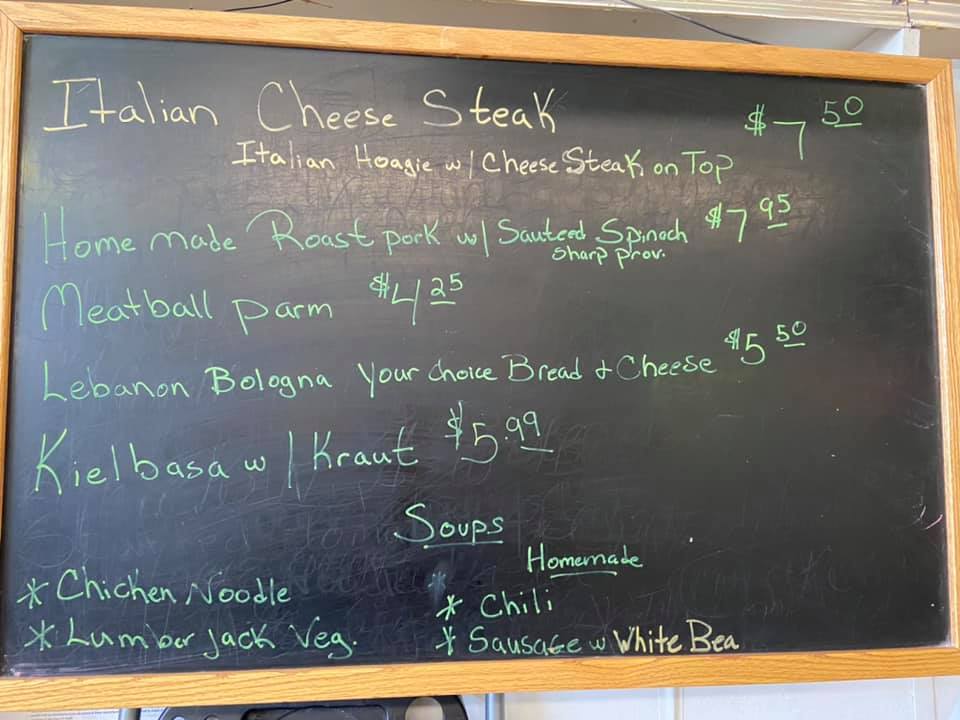 Italian Cheese Steak $7 50
Italian Hoagie w/ Cheese Steak on Top
Home made Roast pork w/ Sauteed Spinach $7 95
Sharp prov.
Meatball parm $4 25
Lebanon Bologna Your choice Bread & Cheese $5 50
Kielbasa w/ Kraut $5.99
Soups
Homemade
* Chicken Noodle
* Chili
* Lumber jack Veg.
* Sausage w White Bea